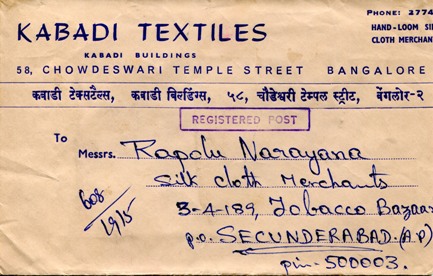 PHONE: 2774
KABADI TEXTILES
HAND-LOOM SI
CLOTH MERCHAN
KABADI BUILDINGS
58, CHOWDESWARI TEMPLE STREET BANGALORE
कबाडी टेक्सटैल्स, कबाडी बिल्डिंग्स, ५८, चौडेश्वरी टेम्पल स्ट्रीट, बेंगलोर-२
REGISTERED POST
To
Messrs. Rapolu Narayana
Silk Cloth Merchants
608
1915
3-4-189, Tobacco Bazaa
p.o. SECUNDERABAD. (A.P)
pin- 500003.